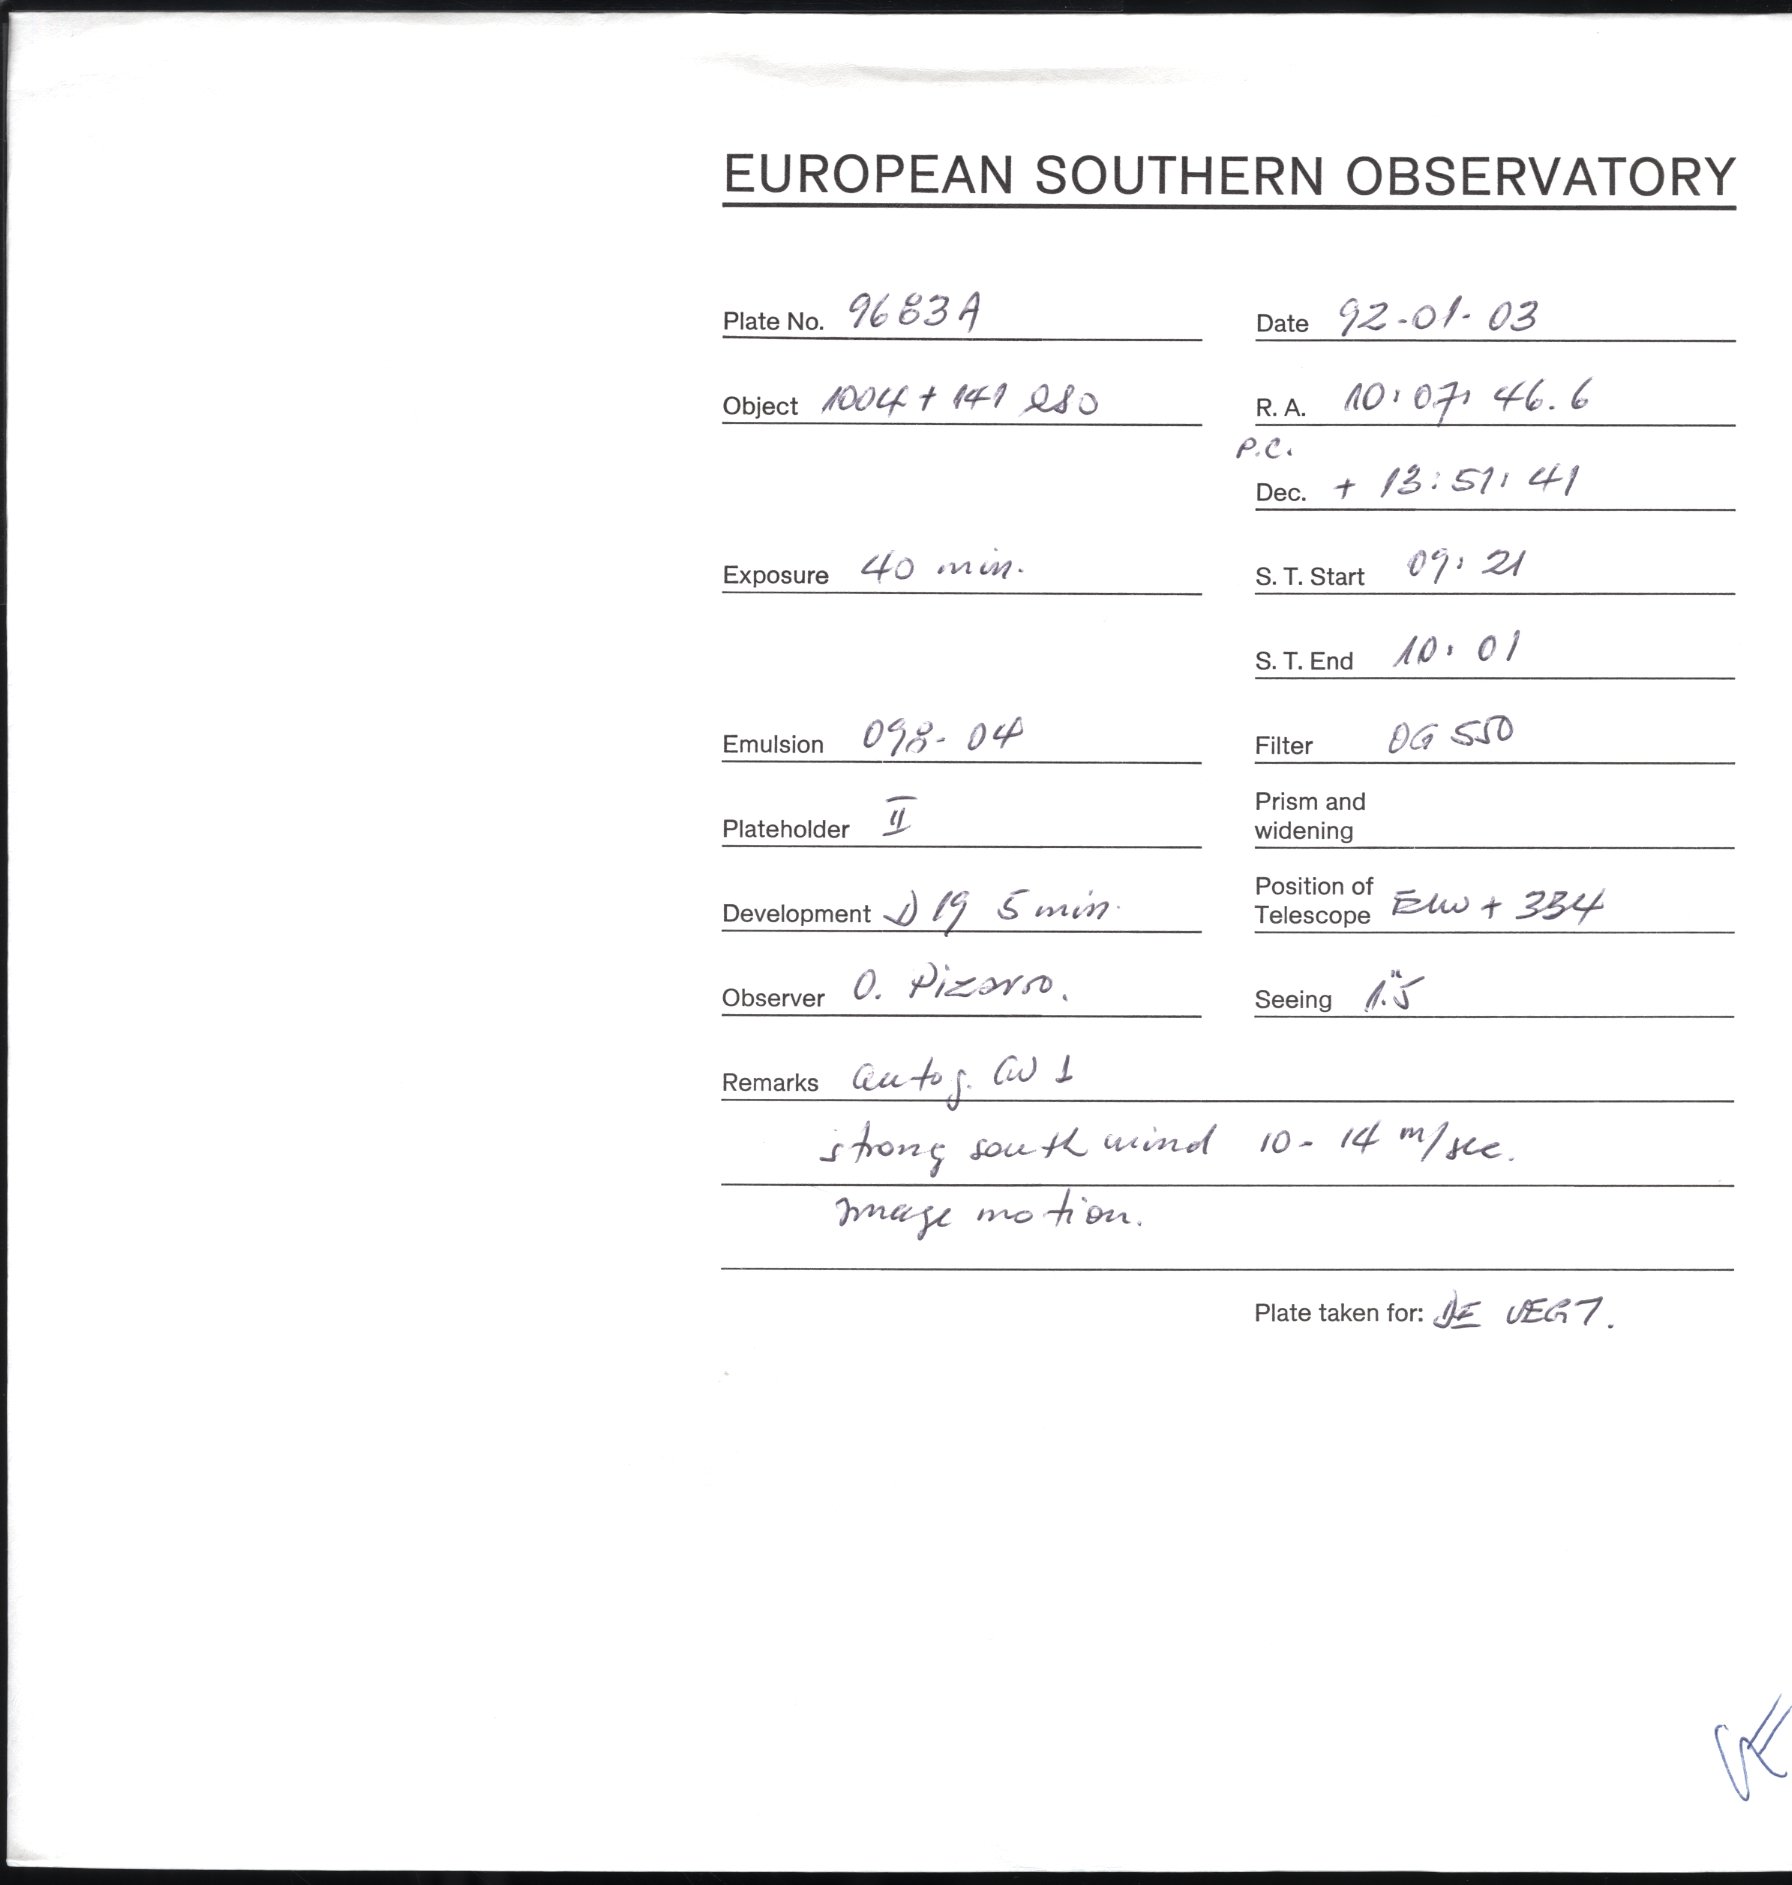 EUROPEAN SOUTHERN OBSERVATORY
Plate No. 9683A Date 92-01-03
Object 1004+141 QSO R. A. 10:07:46.6
P.C.
Dec. + 13:51:41
Exposure 40 min. S. T. Start 09:21
S. T. End 10:01
Emulsion 098-04 Filter OG 550
Plateholder II Prism and
widening
Development D19 5 min. Position of
Telescope + 334
Observer O. Pizarro. Seeing 1."5
Remarks autog. CW 1
strong south wind 10-14 m/sec.
Image motion.
Plate taken for: DE VEGT.